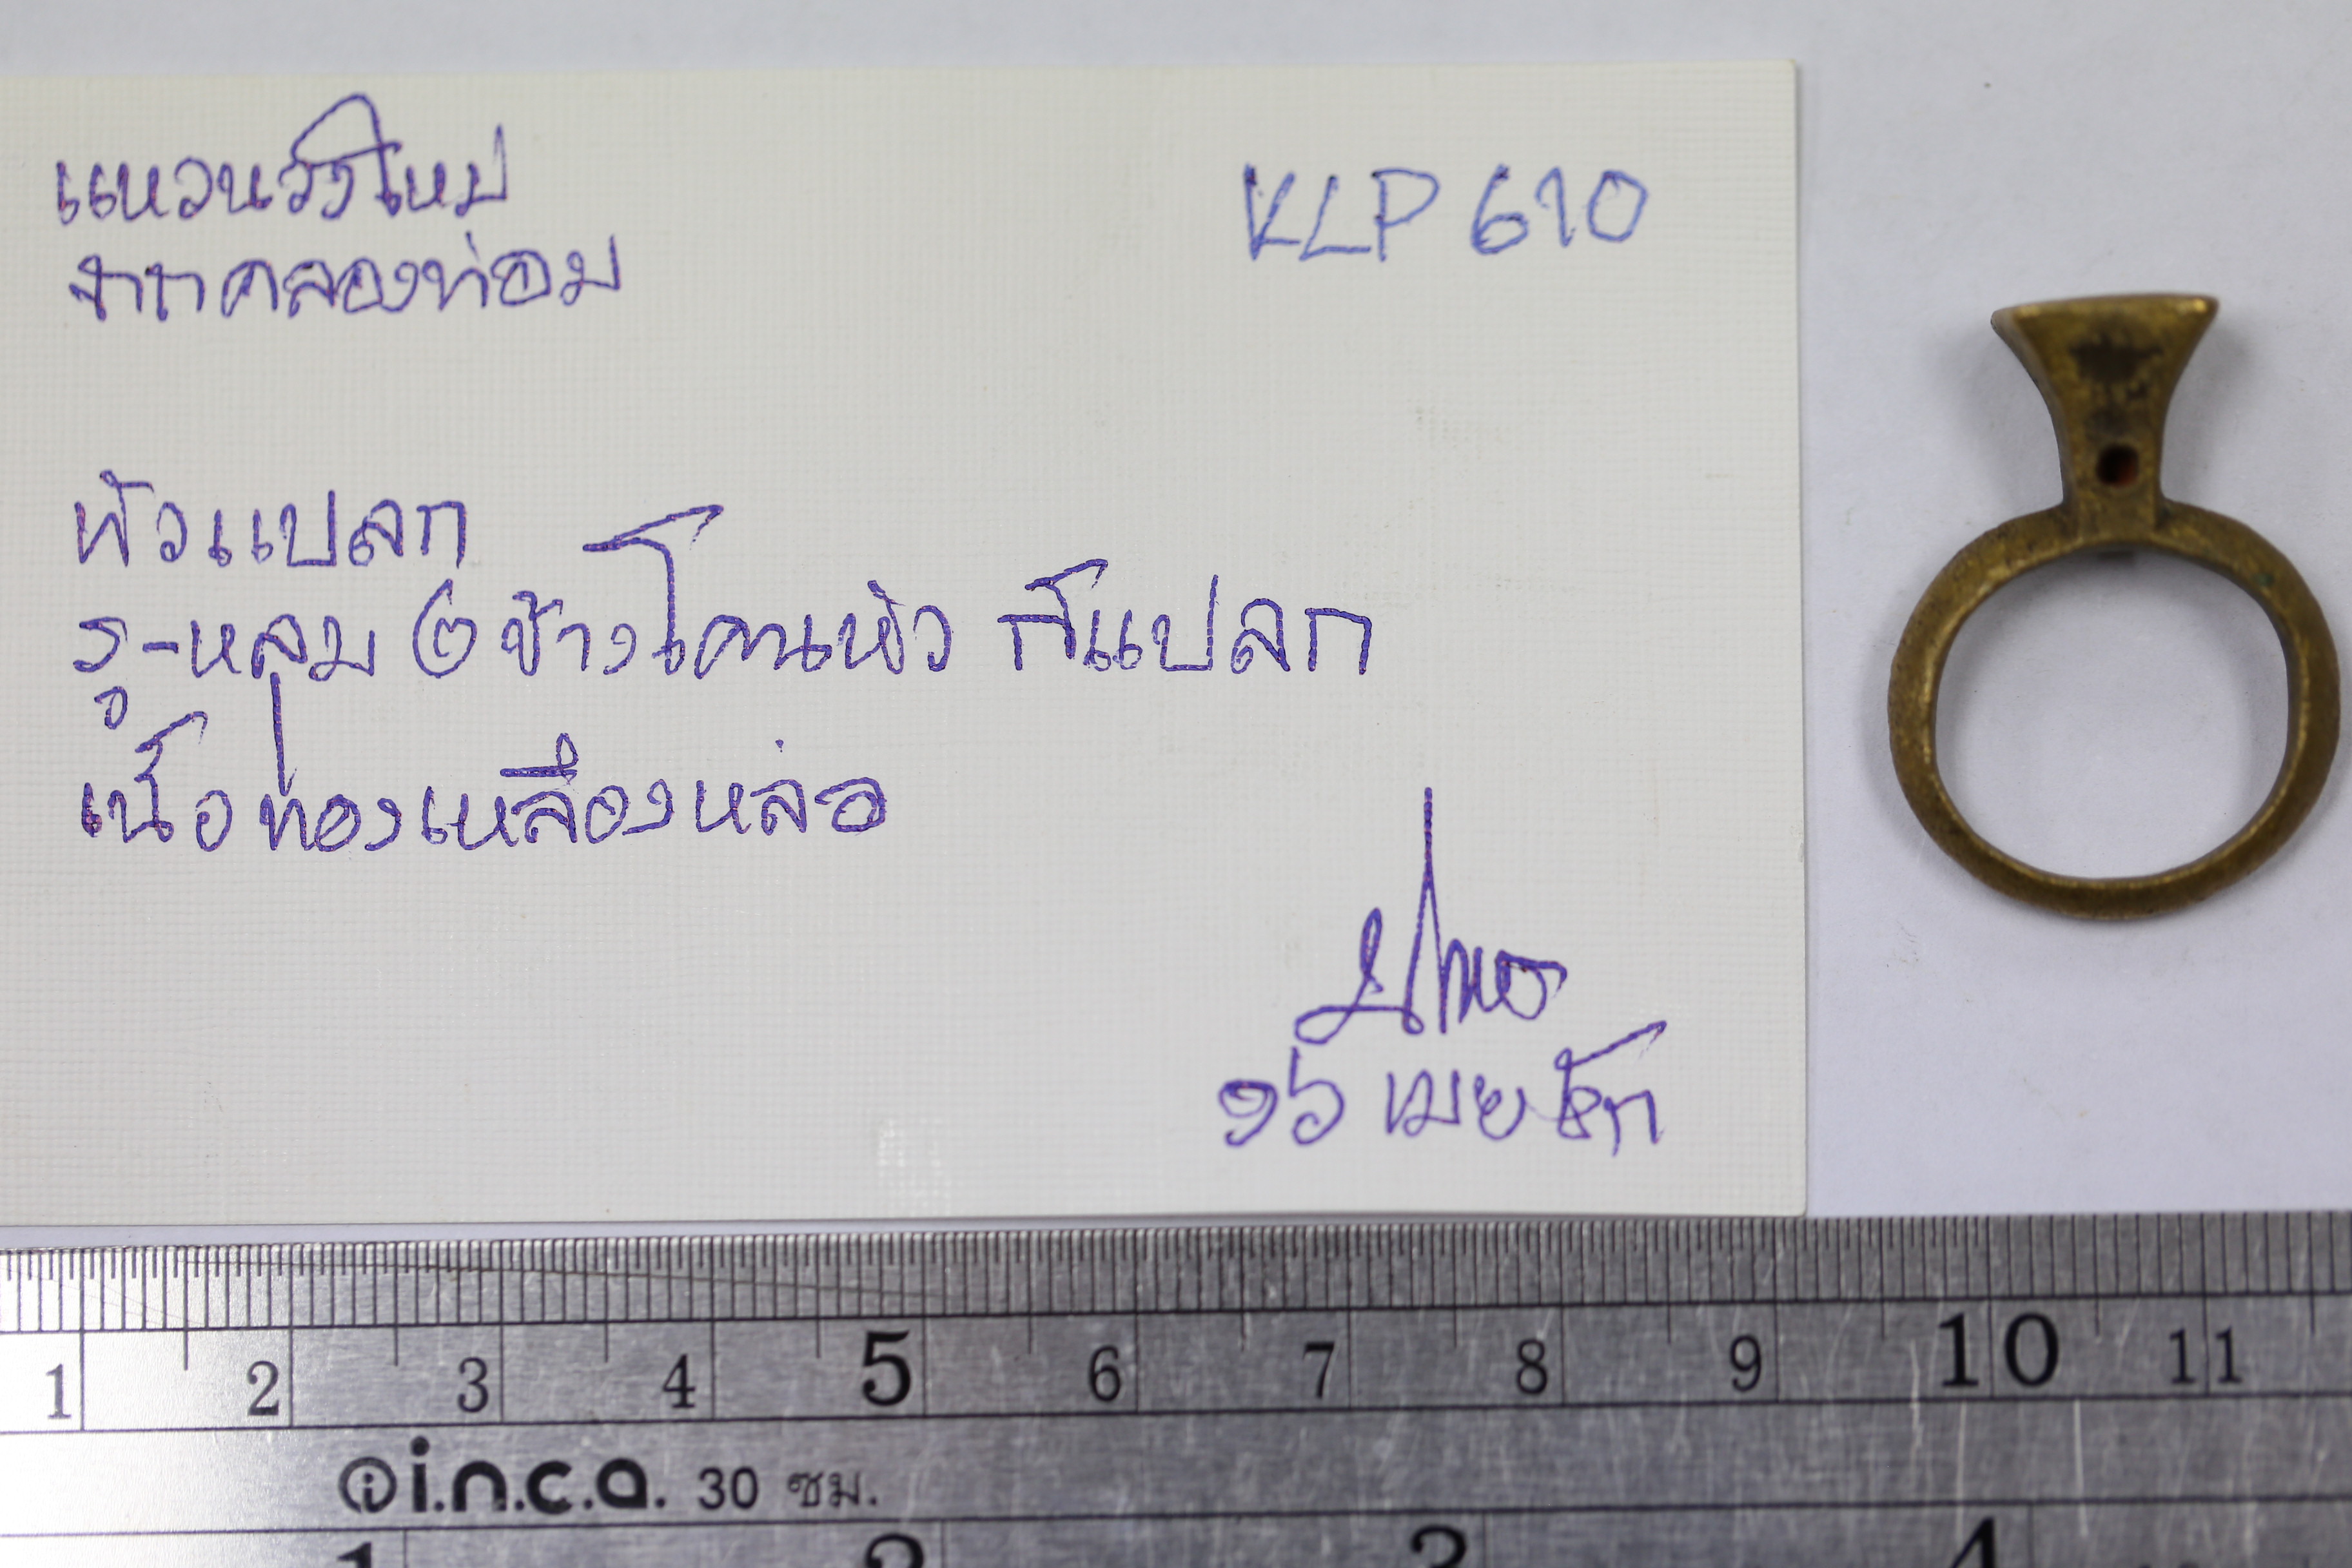 แหวนวงใหม่
จากคลองท่อม
KLP 610
หัวแปลก
รู-หลุม ๒ ข้างโคนหัว ก็แปลก
เนื้อทองเหลืองหล่อ
๑๖ เมย
1 2 3 4 5 6 7 8 9 10 11
i.n.c.a. 30 ซม.
1 2 3 4